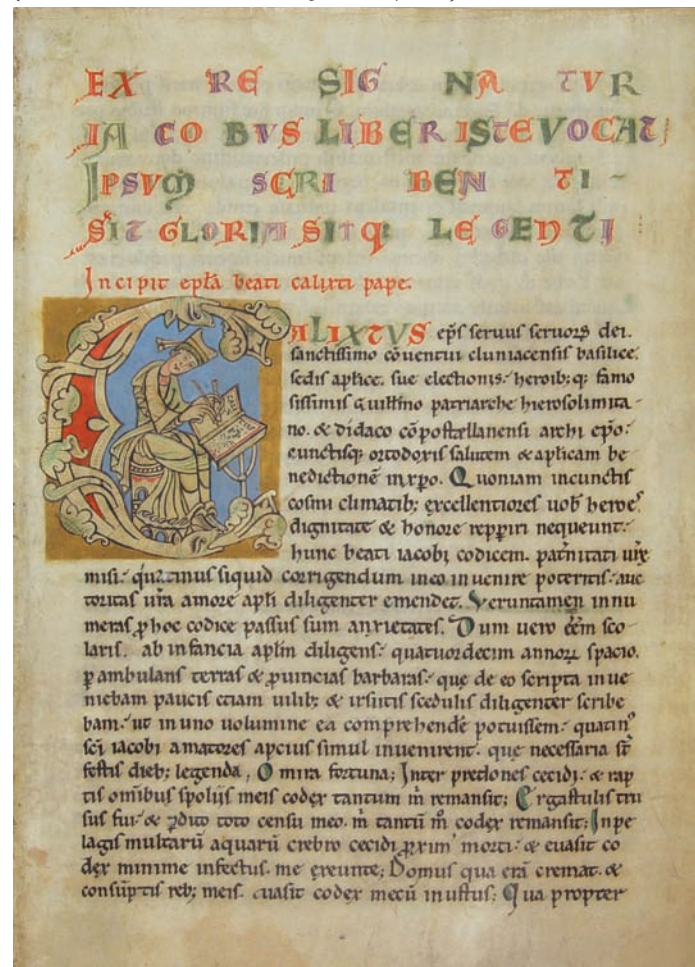 EX RE SIG NA TVR
IACOBVS LIBER ISTE VOCAT᷑
IPSVM SCRIBENTI-
SIT GLORIA SITQ; LEGENTI
Incipit epła beati calixti pape.
CALIXTVS ep̄s seruus seruoꝝ dei.
sanctissimo cōuentui cluniacensis basilice.
sedis aplice. sue electionis. heroib;q; famo
sissimis Guillīno patriarche hierosolimita
no. & didaco cōpostellanensi archi ep̄o.
cunctisq; ortodoxis salutem & aplicam be
nedictionē in xp̄o. Quoniam in cunctis
cosmi climatib; excellentiores uob̄ heroes
dignitate & honore repp̄iri nequeunt.
hunc beati iacobi codicem. pat̄nitati ur̄e
misi. q̄uatinus siquid corrigendum in eo inuenire poteritis. auc
toritas ur̄a amore apłi diligenter emendet. Veruntamen innu
meras p̄ hoc codice passus sum anxietates. Dum uero eēm sco
laris. ab infancia apłm diligens. quatuordecim annoꝝ spacio.
ꝑambulans terras & ꝓuincias barbaras. que de eo scripta inue
niebam paucis etiam uilib; & irsutis scedulis diligenter scribe
bam. ut in uno uolumine ea comprehende᷑ potuissem. quatin᷒
sc̄i iacobi amatores apcius simul inuenirent. que necessaria st̄
festis dieb; legenda, O mira fortuna; Inter predones cecidi. & rap
tis omībus spolijs meis codex tantum m̄ remansit; Ergastulis tru
sus fui. & ꝑdito toto censu meo. m̄ tantū m̊ codex remansit; In pe
lagis multarū aquarū crebro cecidi ꝓxim᷒ morti. & euasit co
dex minime infectus. me exeunte; Domus qua erā cremat᷑. &
consūptis reb; meis. euasit codex mecū inustus; Qua propter